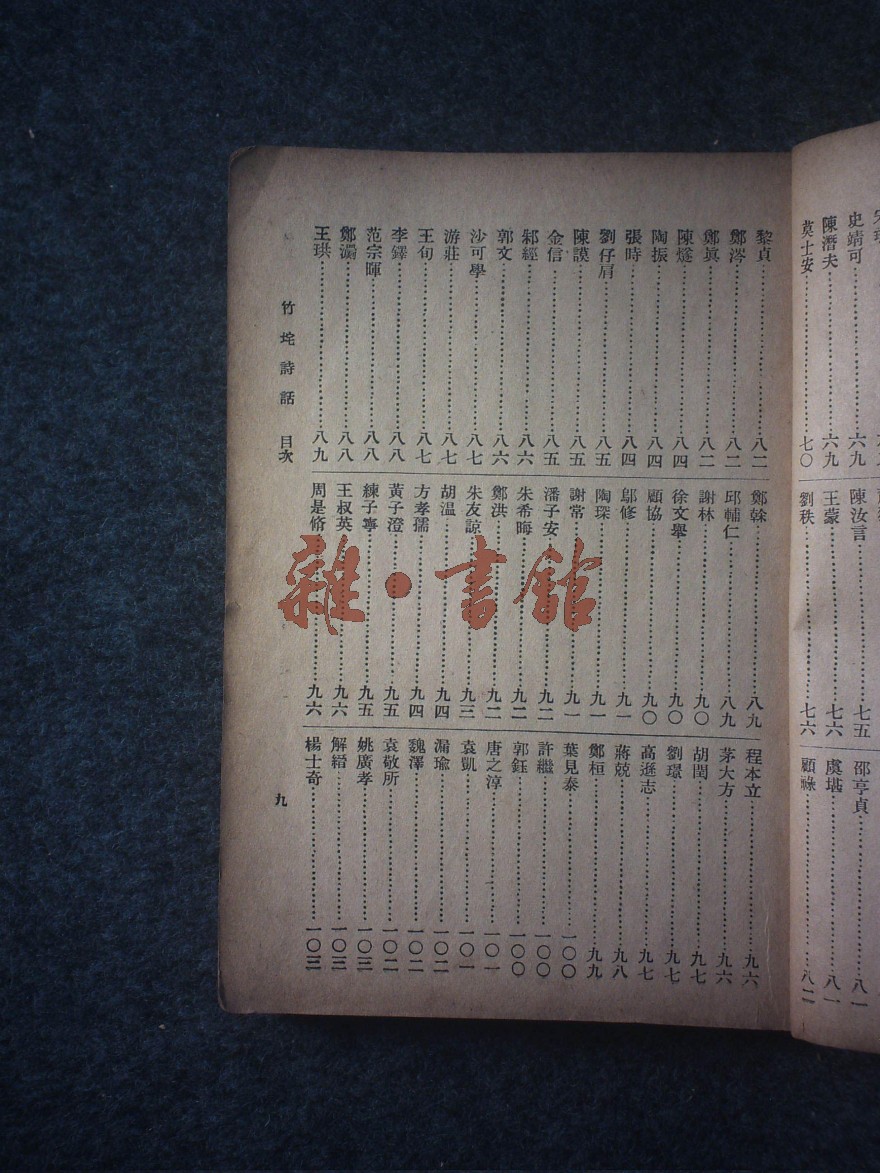 史靖可……六九
陳潛夫……六九
莫士安……七〇
陳汝言……七五
王蒙……七六
劉秩……七六
邵亨貞……八一
虞堪……八一
顧祿……八二
黎貞……八二
鄭涔……八二
鄭真……八二
陳燧……八四
陶振……八四
張時……八四
劉仔肩……八五
陳謨……八五
金信……八五
邾經……八六
郭文……八六
沙可學……八七
游莊……八七
王旬……八七
李鐸……八八
范宗暉……八八
鄭灂……八八
王珙……八九
鄭榦……八九
邱輔仁……八九
謝林……九〇
徐文舉……九〇
顧協……九〇
鄔修……九一
陶琛……九一
謝常……九一
潘子安……九二
朱希晦……九二
鄭洪……九二
朱友諒……九三
胡溫……九四
方孝孺……九四
黃子澄……九五
練子寧……九五
王叔英……九六
周是脩……九六
程本立……九六
茅大方……九六
胡閏……九七
劉璟……九七
高遜志……九七
蔣兢……九八
鄭桓……九九
葉見泰……一〇〇
許繼……一〇〇
郭鈺……一〇〇
唐之淳……一〇一
袁凱……一〇一
漏瑜……一〇二
魏澤……一〇二
袁敬所……一〇二
姚廣孝……一〇三
解縉……一〇三
楊士奇……一〇三
竹垞詩話 目次
九
雜·書館